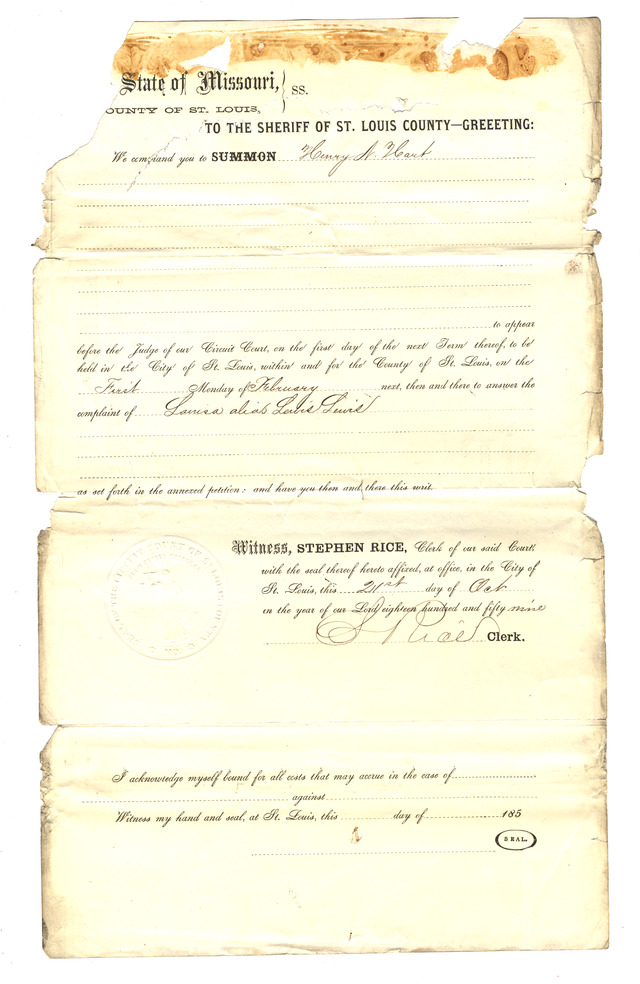 State of Missouri, } ss.
OUNTY OF ST. LOUIS,
TO THE SHERIFF OF ST. LOUIS COUNTY—GREEETING:
We command you to SUMMON Henry N. Hart
to appear
before the Judge of our Circuit Court, on the first day of the next Term thereof, to be
held in the City of St. Louis, within and for the County of St. Louis, on the
First Monday of February next, then and there to answer the
complaint of Louisa alias Lewis
as set forth in the annexed petition: and have you then and there this writ.
Witness, STEPHEN RICE, Clerk of our said Court
with the seal thereof hereto affixed, at office, in the City of
St. Louis, this 21st day of Oct
in the year of our Lord eighteen hundred and fifty nine
S Rice Clerk.
I acknowledge myself bound for all costs that may accrue in the case of
against
Witness my hand and seal, at St. Louis, this day of 185
SEAL.